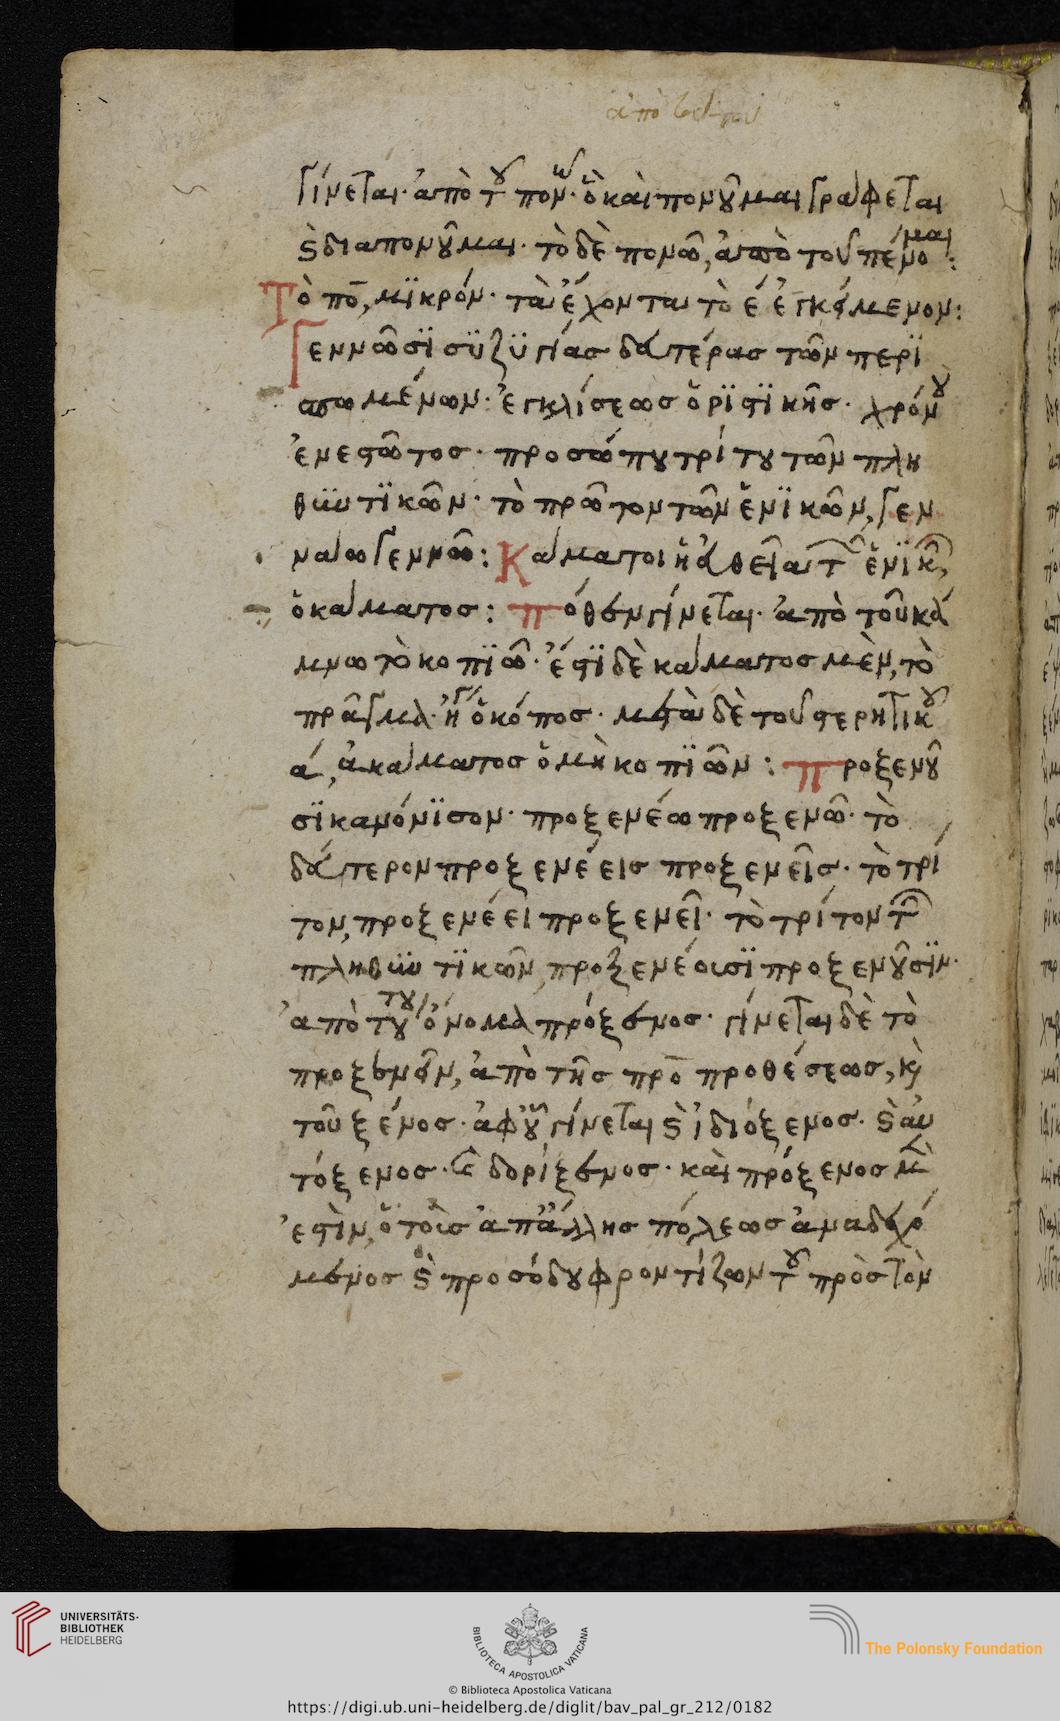 γίνεται· ἀπὸ τοῦ πονῶ· ὃ καὶ πονοῦμαι γράφεται
καὶ διαπονοῦμαι· τὸ δὲ πονῶ, ἀπὸ τοῦ πένομαι:
Τὸ πο, μϊκρόν· τὰ ἔχοντα τὸ ε ἐγκείμενον:
Γεννῶσϊ συζυγίας δευτέρας τῶν περϊ
σπωμένων· ἐγκλίσεως ὁρϊστϊκῆς· χρόνου
ἐνεστῶτος· προσώπου τρίτου τῶν πλη
θυντϊκῶν· τὸ πρῶτον τῶν ἑνϊκῶν, γεν
νάω γεννῶ: Κάματοι ἡ εὐθεῖα τῶν ἑνϊκῶν,
ὁ κάματος: πόθεν γίνεται· ἀπὸ τοῦ κά
μνω τὸ κοπϊῶ· ἔστϊ δὲ κάματος μὲν, τὸ
πρᾶγμα· ἤγουν ὁ κόπος· μετὰ δὲ τοῦ στερητικοῦ
α, ἀκάματος ὁ μὴ κοπϊῶν: προξενοῦ
σϊ κανόνϊσον· προξενέω προξενῶ· τὸ
δεύτερον προξενέεις προξενεῖς· τὸ τρί
τον, προξενέει προξενεῖ· τὸ τρίτον τῶν
πληθυντϊκῶν, προξενέουσϊ προξενοῦσϊν·
ἀπὸ τούτου ὄνομα πρόξενος· γίνεται δὲ τὸ
προξενεῖν, ἀπὸ τῆς προ προθέσεως, καὶ
τοῦ ξένος· ἀφ' οὗ γίνεται καὶ ἰδιόξενος· καὶ αὐ
τόξενος· καὶ δορίξενος· καὶ πρόξενος μὲν
ἐστὶν, ὁ τοῖς ἀπ' ἄλλης πόλεως ἀναδεχό
μενος καὶ προσόδου φροντίζων τοῦ πρὸς τὸν
UNIVERSITÄTS-
BIBLIOTHEK
HEIDELBERG
BIBLIOTECA APOSTOLICA VATICANA
The Polonsky Foundation
© Biblioteca Apostolica Vaticana
https://digi.ub.uni-heidelberg.de/diglit/bav_pal_gr_212/0182